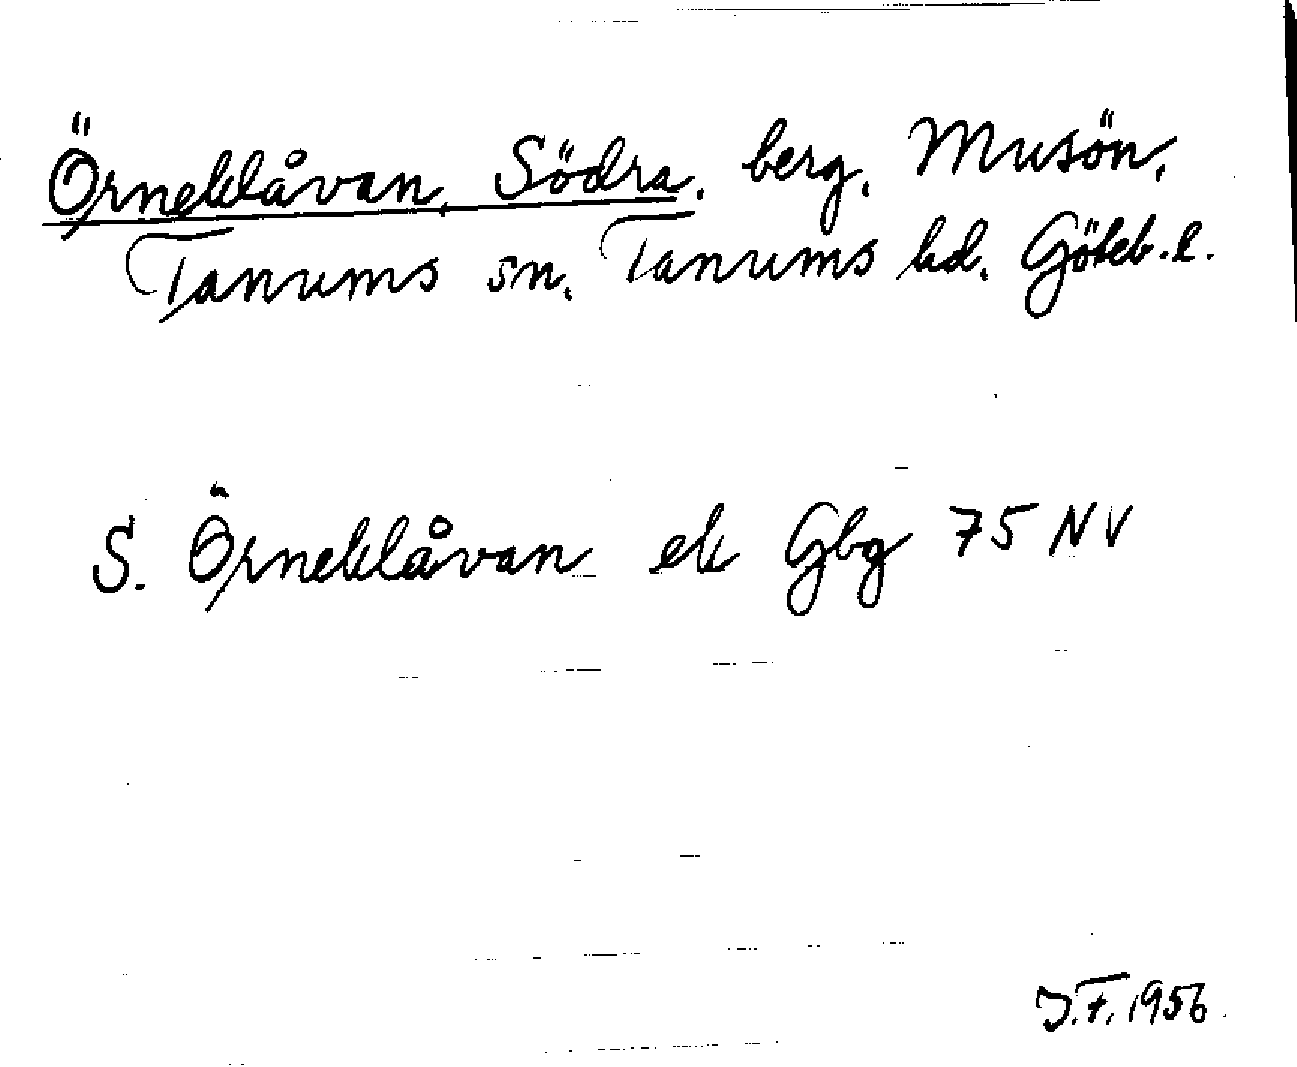 Örneklåvan, Södra. berg. Musön,
Tanums sn. Tanums hd. Göteb. l.
S. Örneklåvan ek Gbg 75 NV
J.F. 1956.